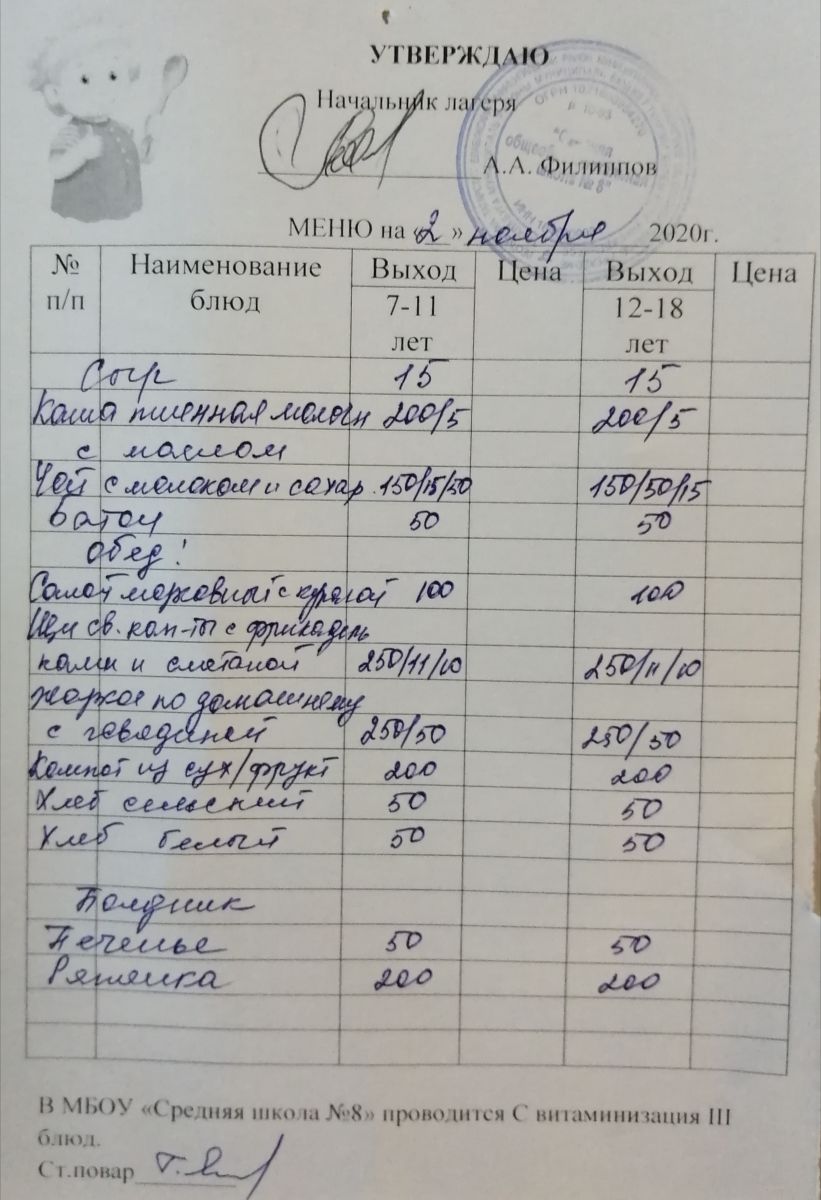 УТВЕРЖДАЮ
Начальник лагеря
А.А. Филиппов
МЕНЮ на «2» ноября 2020г.
№ п/п Наименование блюд Выход 7-11 лет Цена Выход 12-18 лет Цена
Сыр 15 15
Каша пшенная молочн 200/5 200/5
с маслом
Чай с молоком и сахар. 150/15/50 150/50/15
Батон 50 50
Обед!
Салат морковный с курагой 100 100
Щи св. кап-ты с фрикадель
ками и сметаной 250/11/10 250/11/10
Жаркое по домашнему
с говядиной 250/50 250/50
Компот из сух/фрукт 200 200
Хлеб сельский 50 50
Хлеб белый 50 50
Полдник
Печенье 50 50
Ряженка 200 200
В МБОУ «Средняя школа №8» проводится С витаминизация III
блюд.
Ст.повар